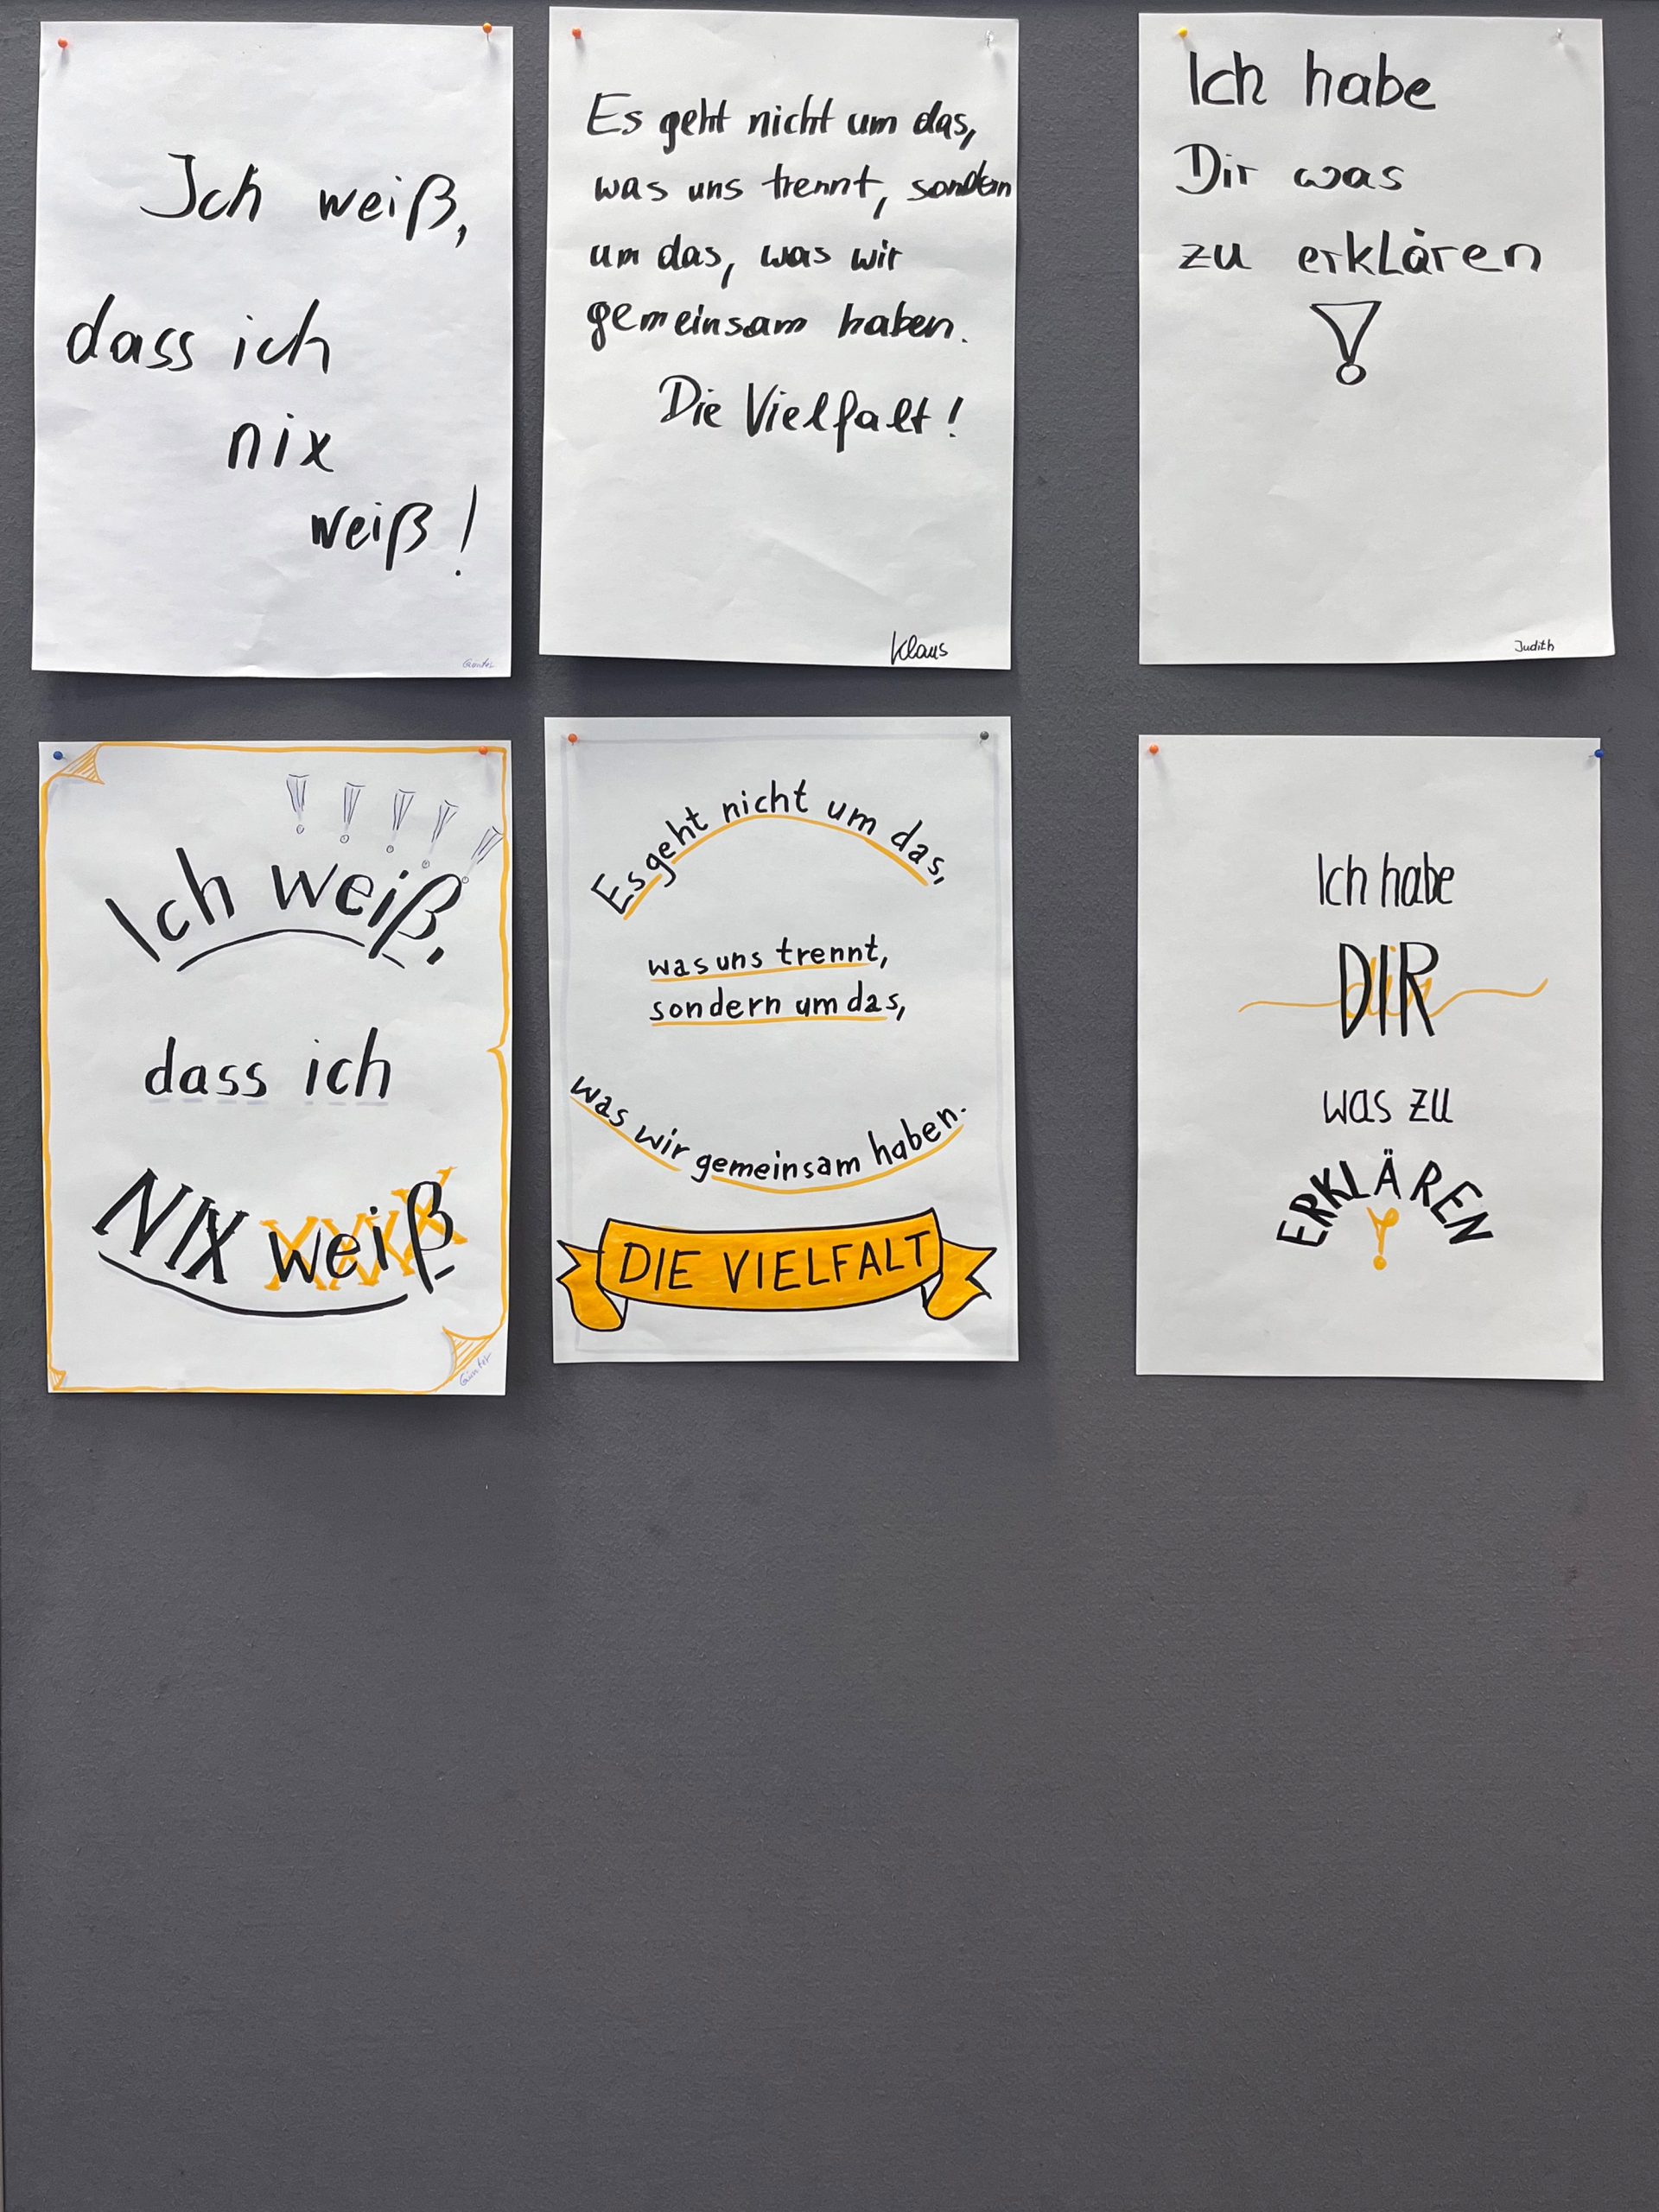 Ich weiß,
dass ich
nix
weiß!
Günter
Es geht nicht um das,
was uns trennt, sondern
um das, was wir
gemeinsam haben.
Die Vielfalt!
Klaus
Ich habe
Dir was
zu erklären
!
Judith
! ! ! ! !
Ich weiß,
dass ich
NIX weiß
Günter
Es geht nicht um das,
was uns trennt,
sondern um das,
was wir gemeinsam haben.
DIE VIELFALT
Ich habe
DIR
was zu
ERKLÄREN
!